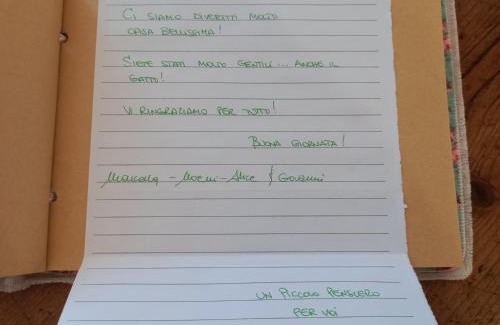 Ci siamo divertiti molto
casa bellissima!
Siete stati molto gentili... anche il
gatto!
Vi ringraziamo per tutto!
Buona giornata!
- Noemi - Alice & Giovanni
un piccolo pensiero
per voi